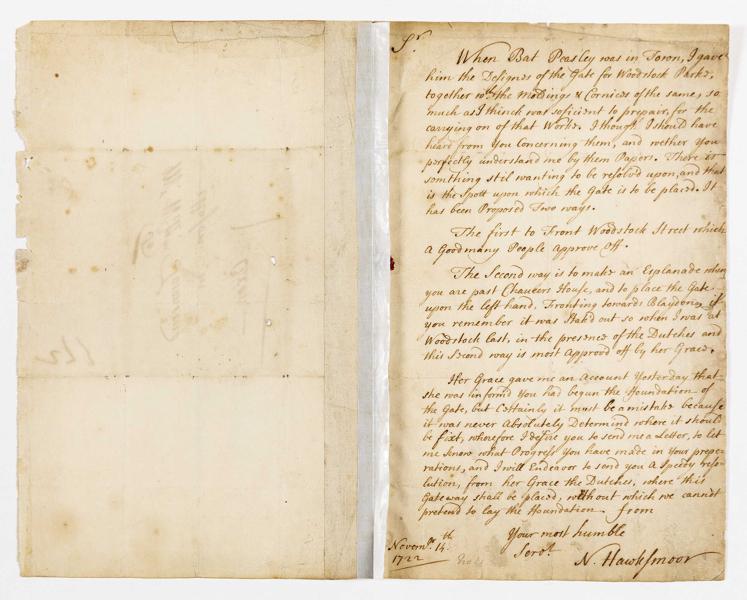 Sr.
When Bat Peasley was in Town, I gave
him the Designes of the Gate for Woodstock Parke,
together wth. the Moldings & Cornices of the same, so
much as I thinck was soficient to prepair, for the
carrying on of that Worke. I though I should have
heard from you Concerning them, and wether you
perfectly understand me by them Papers. There is
somthing stil wanting to be resolvd upon, and that
is the Spott upon which the Gate is to be placed. It
has been Proposed Two ways.
The first to Front Woodstock Street which
a Goodmany People Approve Off.
The Second way is to make an Esplanade when
you are past Chaucers House, and to place the Gate
upon the left hand, Fronting towards Bladon, if
you remember it was Stak'd out so when I was at
Woodstock last, in the presence of the Dutches and
this Second way is most Approvd off by her Grace.
Her Grace gave me an Account Yesterday that
she was informd You had begun the Foundation of
the Gate, but Certainly it must be a mistake because
it was never Absolutely Determind where it should
be fixt, wherefore I desire you to send me a Letter, to let
me know what Progress You have made in Your prepe-
rations, and I will Endeavor to send you A Speedy reso-
lution, from her Grace the Dutches, where this
Gateway shall be placed, without which we cannot
pretend to lay the Foundation. from
Your most humble
Servt.
Novembr. 14th.
1722
N. Hawksmoor